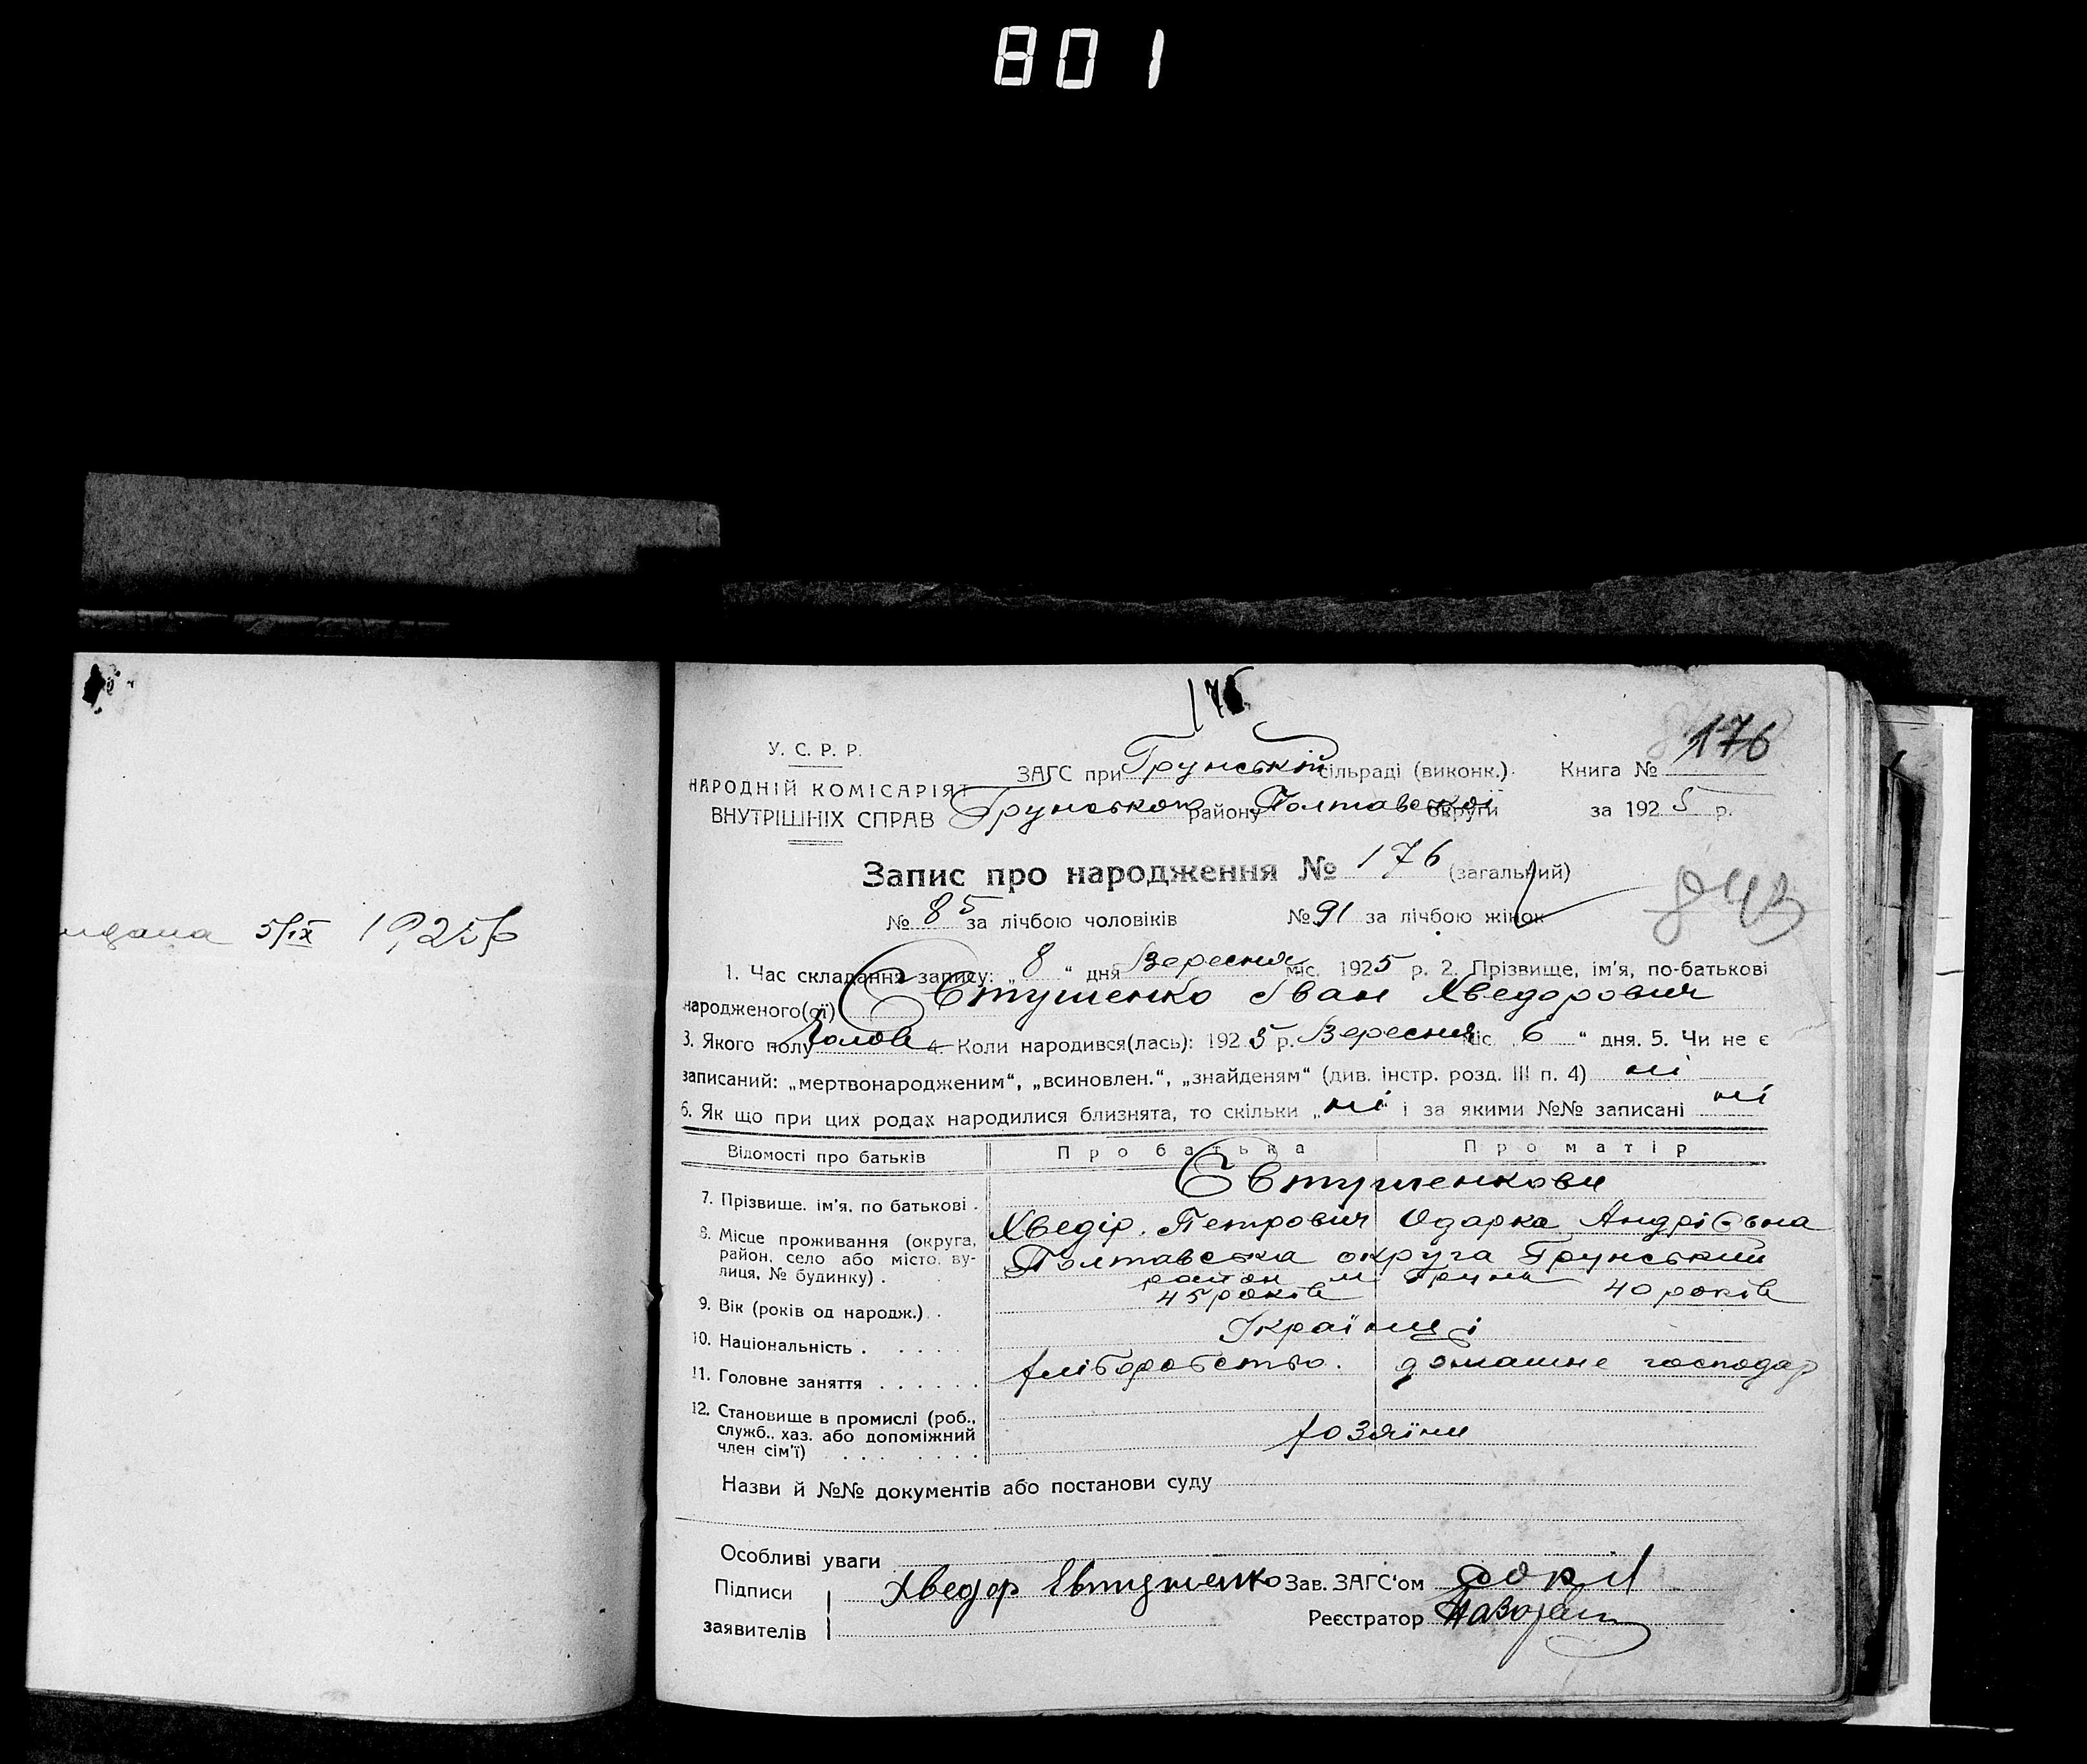 801
видана 5/IX 1925 р
176
176
У. С. Р. Р.
НАРОДНІЙ КОМІСАРІЯТ
ВНУТРІШНІХ СПРАВ
ЗАГС при Грунській сільраді (виконк.). Книга №
Грунського району Полтавської округи за 1925 р.
Запис про народження № 176 (загальний)
843
№ 85 за лічбою чоловіків № 91 за лічбою жінок
1. Час складання запису: „8“ дня Вересня міс. 1925 р. 2. Прізвище, ім'я, по-батькові
народженого(ої) Євтушенко Іван Хведорович
3. Якого полу Чолов 4. Коли народився(лась): 1925 р. Вересня міс. 6 “ дня. 5. Чи не є
записаний: „мертвонародженим“, „всиновлен.“, „знайденям“ (див. інстр. розд. III п. 4) ні
6. Як що при цих родах народилися близнята, то скільки „ні“ і за якими №№ записані ні
Відомості про батьків Про батька Про матір
7. Прізвище, ім'я, по батькові . Євтушенкови
Хведір. Петрович Одарка Андрієвна
8. Місце проживання (округа, район, село або місто, вулиця, № будинку) . Полтавська округа Грунський
район м Грунь
9. Вік (років од народж.) . . 45 років 40 років
10. Національність . . . . . Українці
11. Головне заняття . . . . . . хліборобство. домашнє господар
12. Становище в промислі (роб., служб., хаз. або допоміжний член сім'ї) . . . . . . . . хозяїни
Назви й №№ документів або постанови суду
Особливі уваги
Підписи
заявителів
Хведор Євтушенко Зав. ЗАГС'ом
Реєстратор